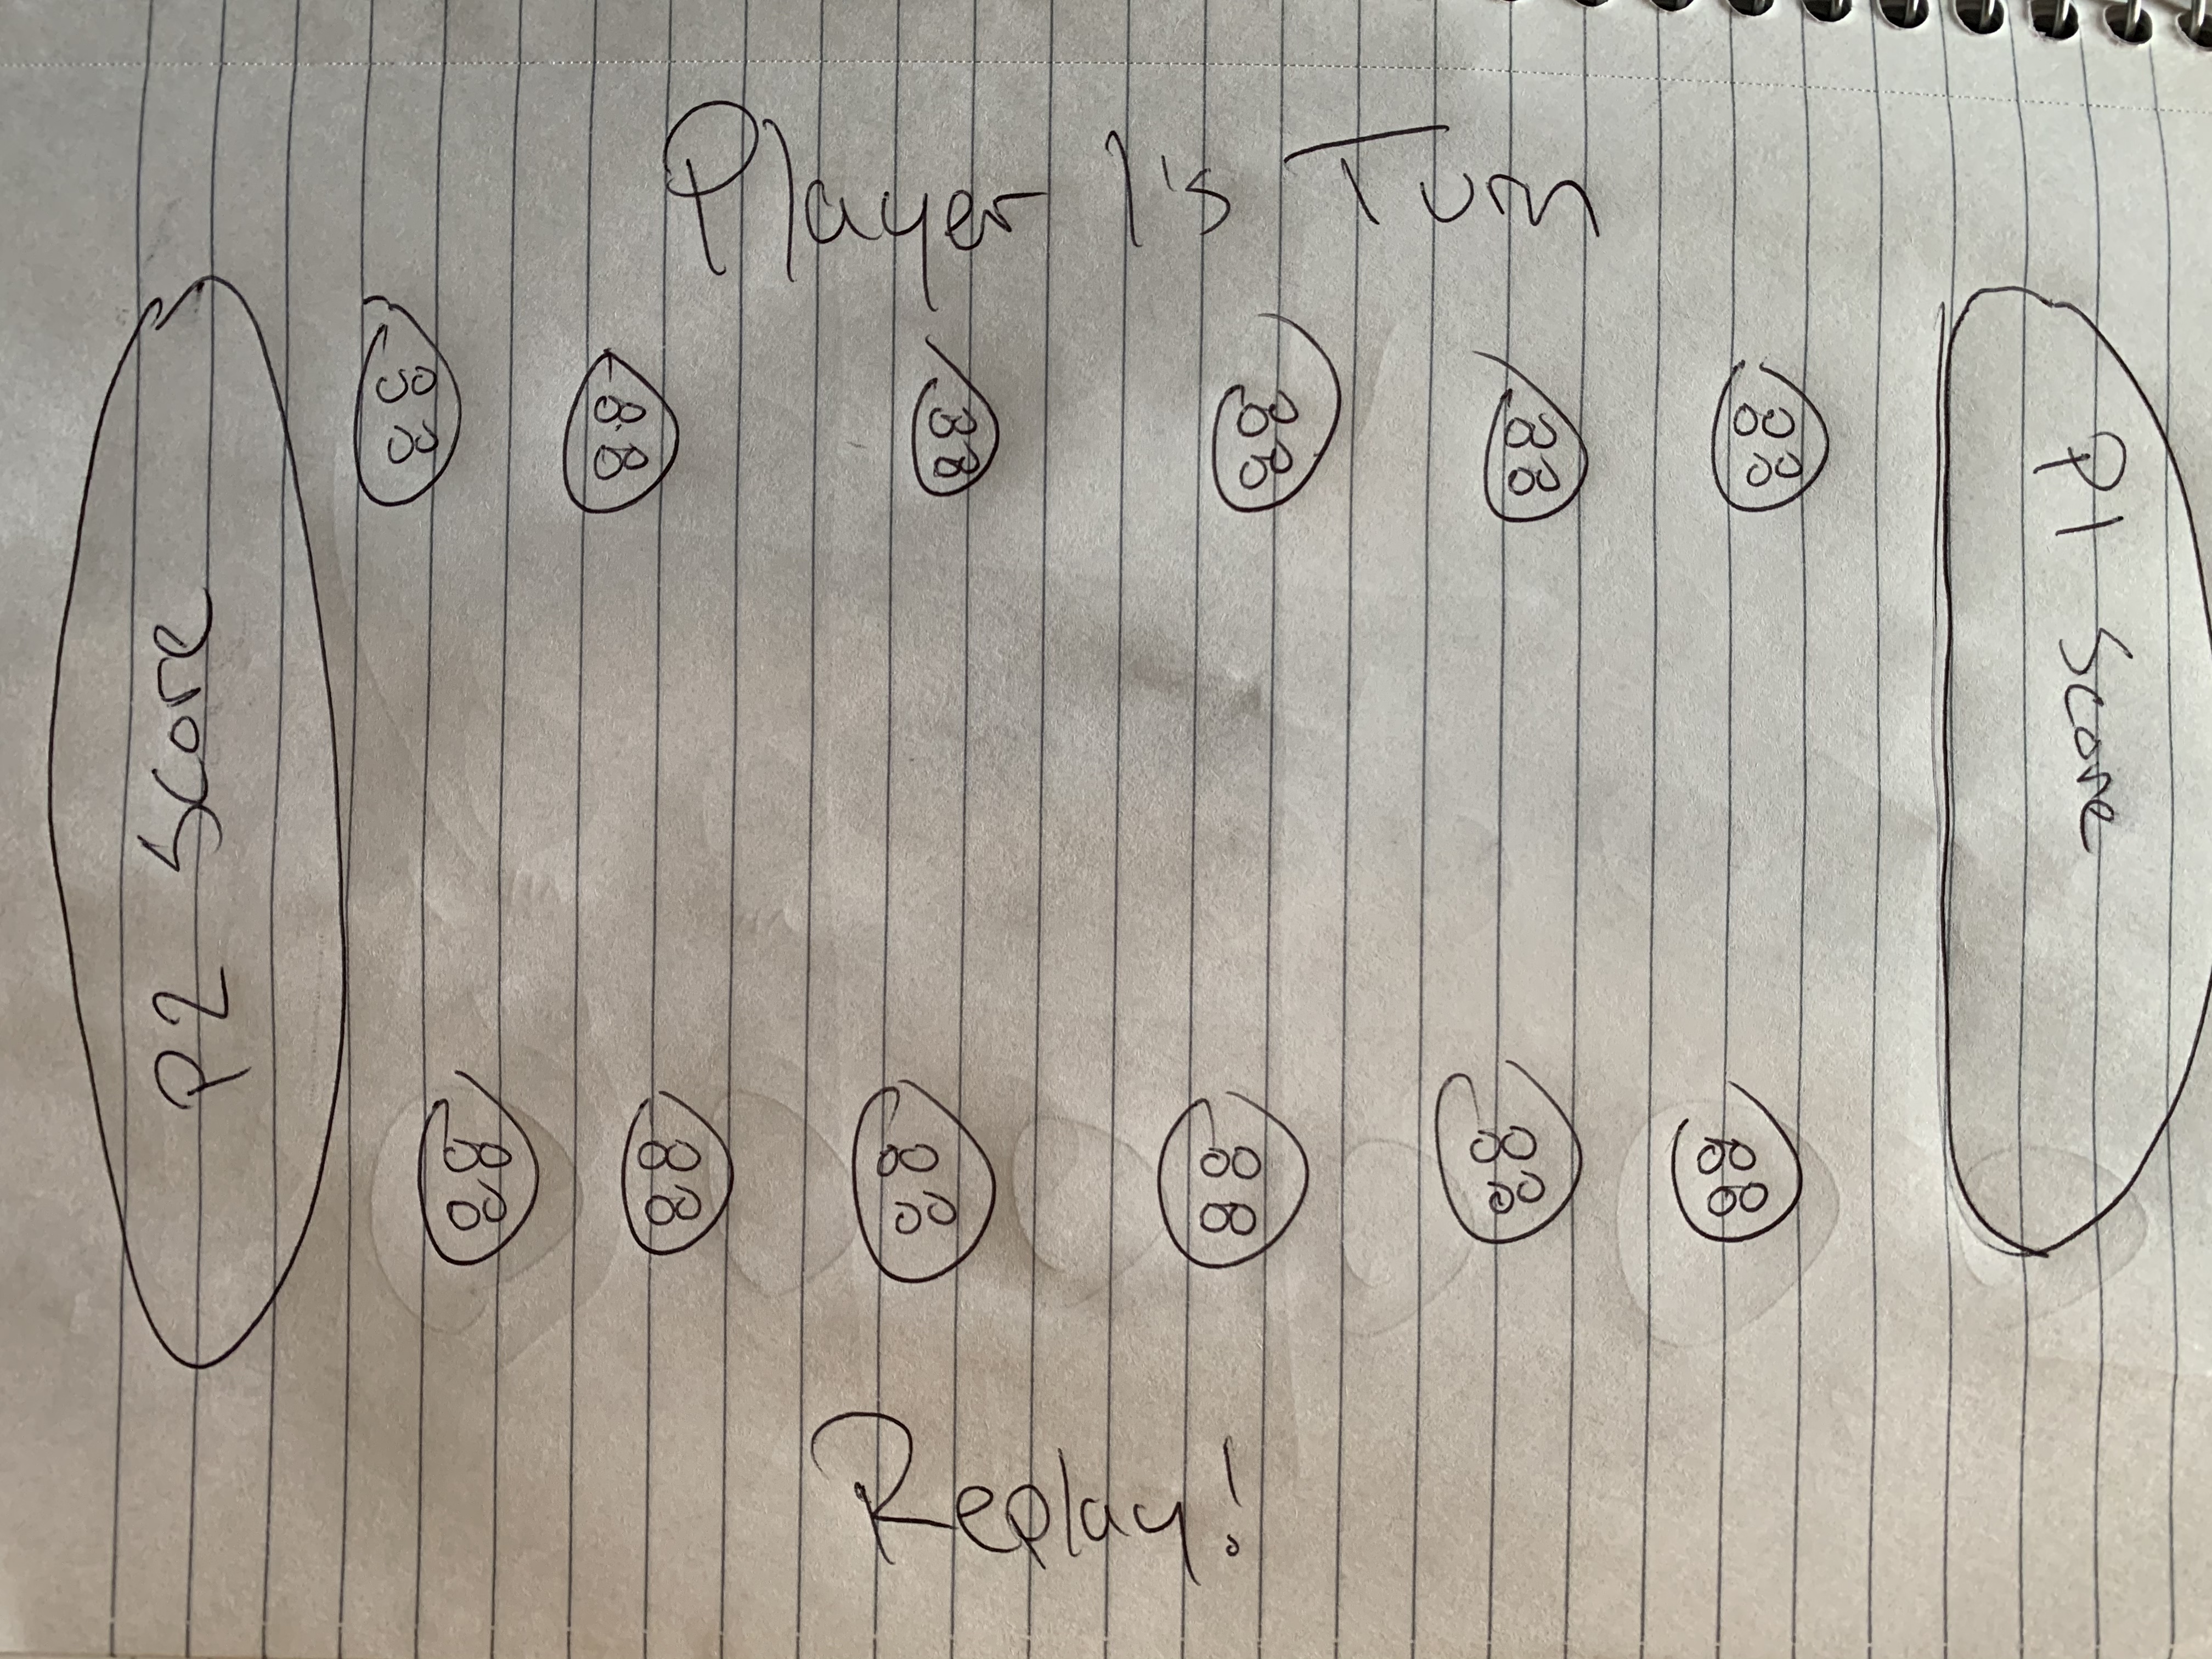 Player 1's Turn
P2 Score
P1 Score
Replay!